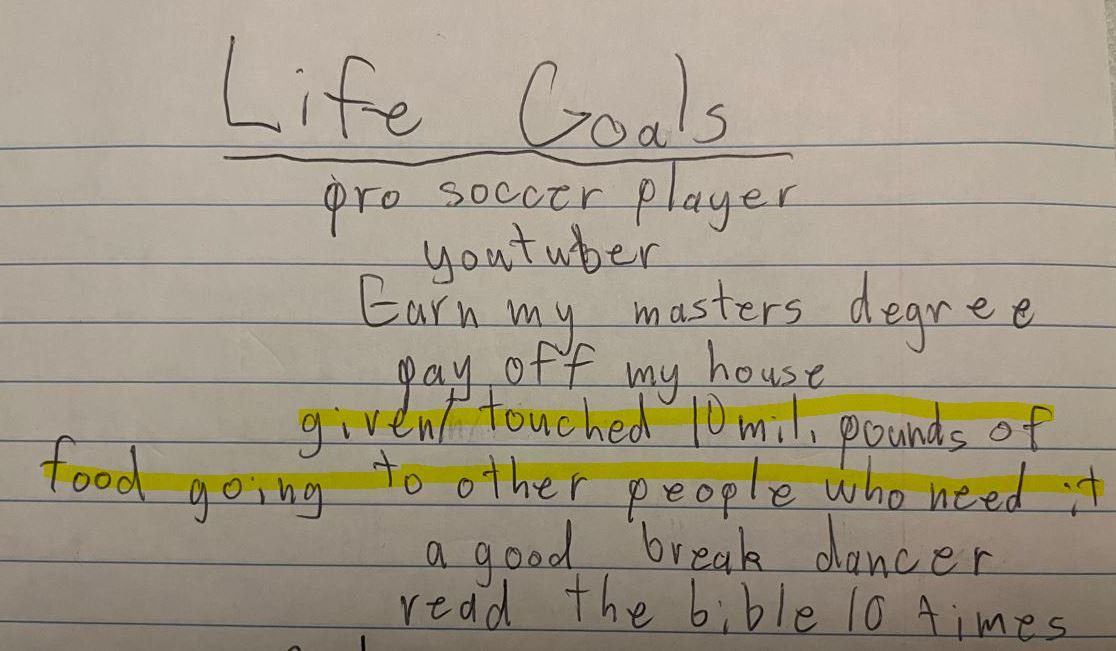 Life Goals
pro soccer player
youtuber
Earn my masters degree
pay off my house
given/touched 10 mil. pounds of
food going to other people who need it
a good break dancer
read the bible 10 times